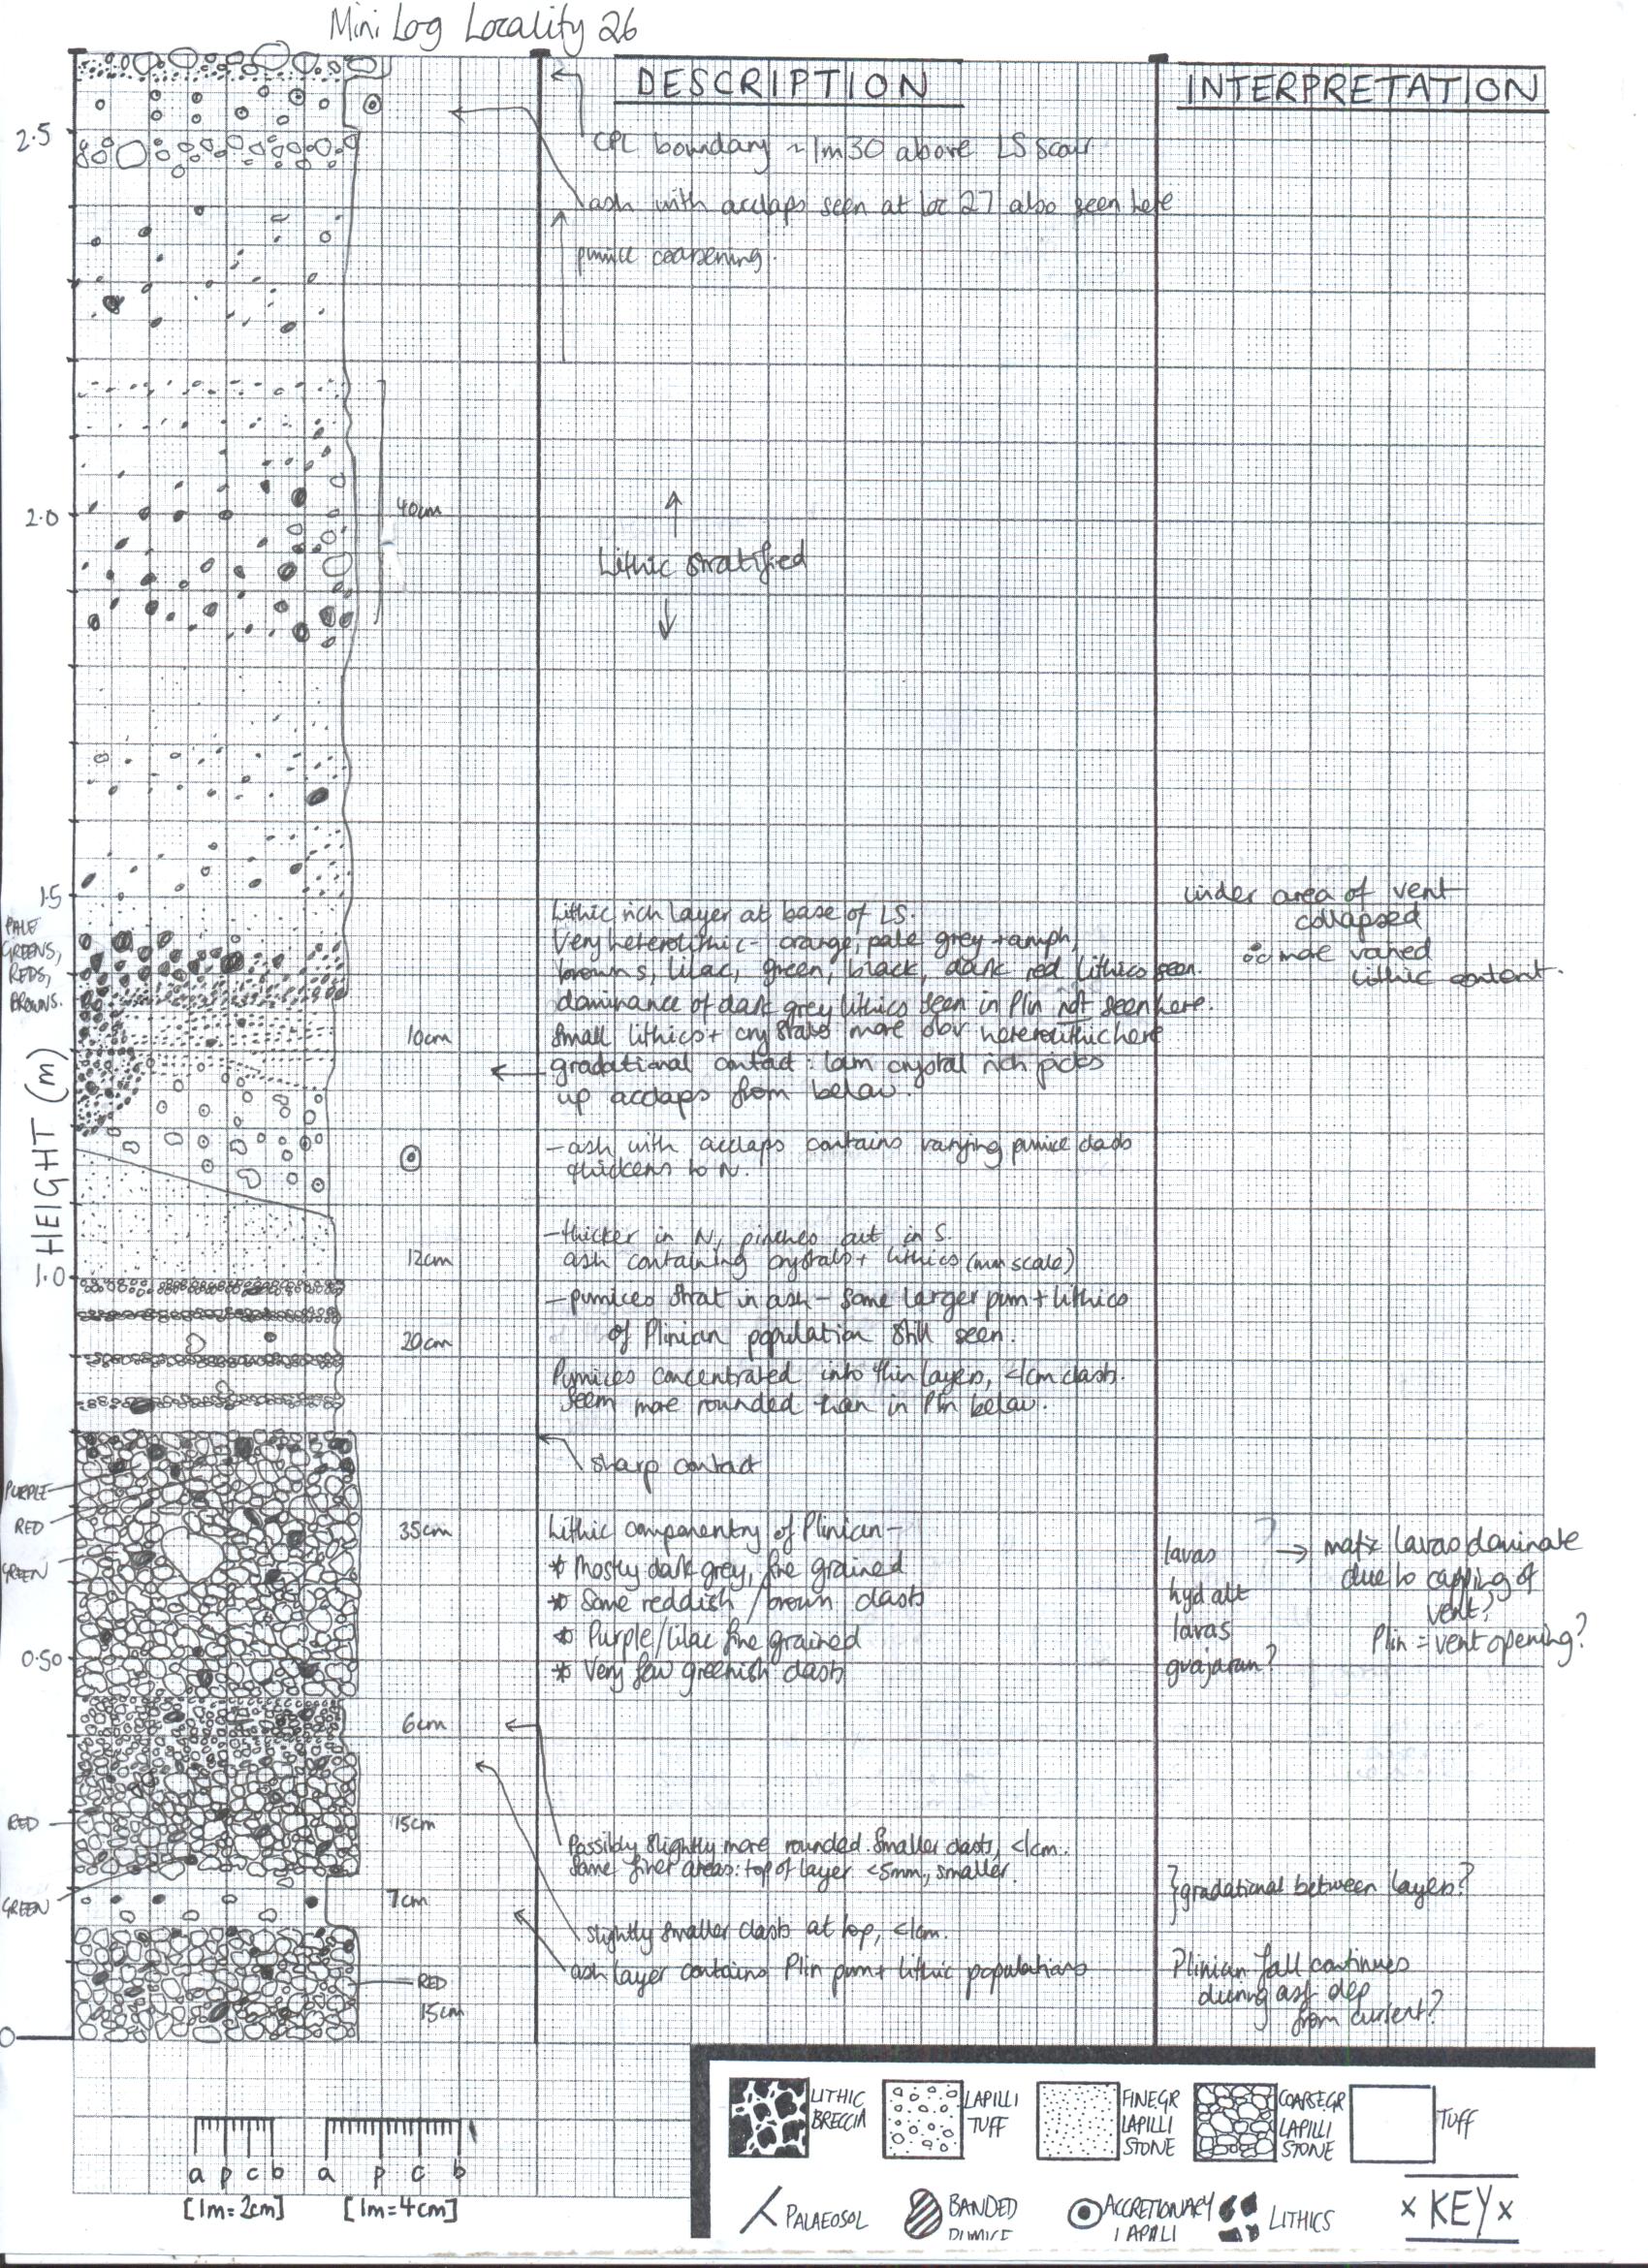 Mini Log Locality 26
DESCRIPTION
INTERPRETATION
2.5
CPL boundary ~ 1m30 above LS scour
ash with acclaps seen at loc 27 also seen here
pumice coarsening.
2.0
40cm
Lithic stratified
1.5
PALE
GREENS,
REDS,
BROWNS.
Lithic rich layer at base of LS.
Very heterolithic - orange, pale grey + amph,
browns, lilac, green, black, dark red lithics seen.
dominance of dark grey lithics seen in Plin not seen here.
10cm
Small lithics + crystals more obv heterolithic here
gradational contact: lam crystal rich picks
up acclaps from below.
under area of vent
collapsed
∴ more varied
lithic content.
HEIGHT (m)
- ash with acclaps contains varying pumice clasts
thickens to N.
- thicker in N, pinches out in S.
12cm
ash containing crystals + lithics (mm scale)
1.0
- pumices strat in ash - some larger pum + lithics
20cm
of Plinian population still seen.
Pumices concentrated into thin layers, <1cm clasts.
Seem more rounded than in Plin below.
sharp contact
PURPLE
RED
GREEN
35cm
Lithic componentry of Plinian -
* Mostly dark grey, fine grained
* Some reddish / brown clasts
* Purple/lilac fine grained
* Very few greenish clasts
lavas
?
hyd alt
lavas
→ mafic lavas dominate
due to capping of
vent?
Plin = vent opening?
0.50
6cm
RED
15cm
Possibly slightly more rounded. Smaller clasts, <1cm.
Some finer areas: top of layer <5mm, smaller.
GREEN
7cm
}gradational between layers?
slightly smaller clasts at top, <1cm.
ash layer contains Plin pum + lithic populations
RED
15cm
Plinian fall continues
during ash dep
from current?
0
a p c b
[1m=2cm]
a p c b
[1m=4cm]
LITHIC
BRECCIA
LAPILLI
TUFF
FINEGR
LAPILLI
STONE
COARSEGR
LAPILLI
STONE
TUFF
PALAEOSOL
BANDED
PUMICE
ACCRETIONARY
LAPILLI
LITHICS
x KEY x